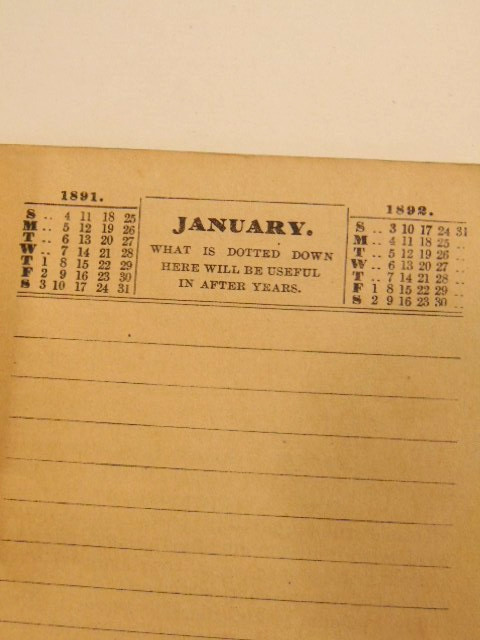 1891.
S .. 4 11 18 25
M .. 5 12 19 26
T .. 6 13 20 27
W .. 7 14 21 28
T 1 8 15 22 29
F 2 9 16 23 30
S 3 10 17 24 31
JANUARY.
WHAT IS DOTTED DOWN
HERE WILL BE USEFUL
IN AFTER YEARS.
1892.
S .. 3 10 17 24 31
M .. 4 11 18 25 ..
T .. 5 12 19 26 ..
W .. 6 13 20 27 ..
T .. 7 14 21 28 ..
F 1 8 15 22 29 ..
S 2 9 16 23 30 ..